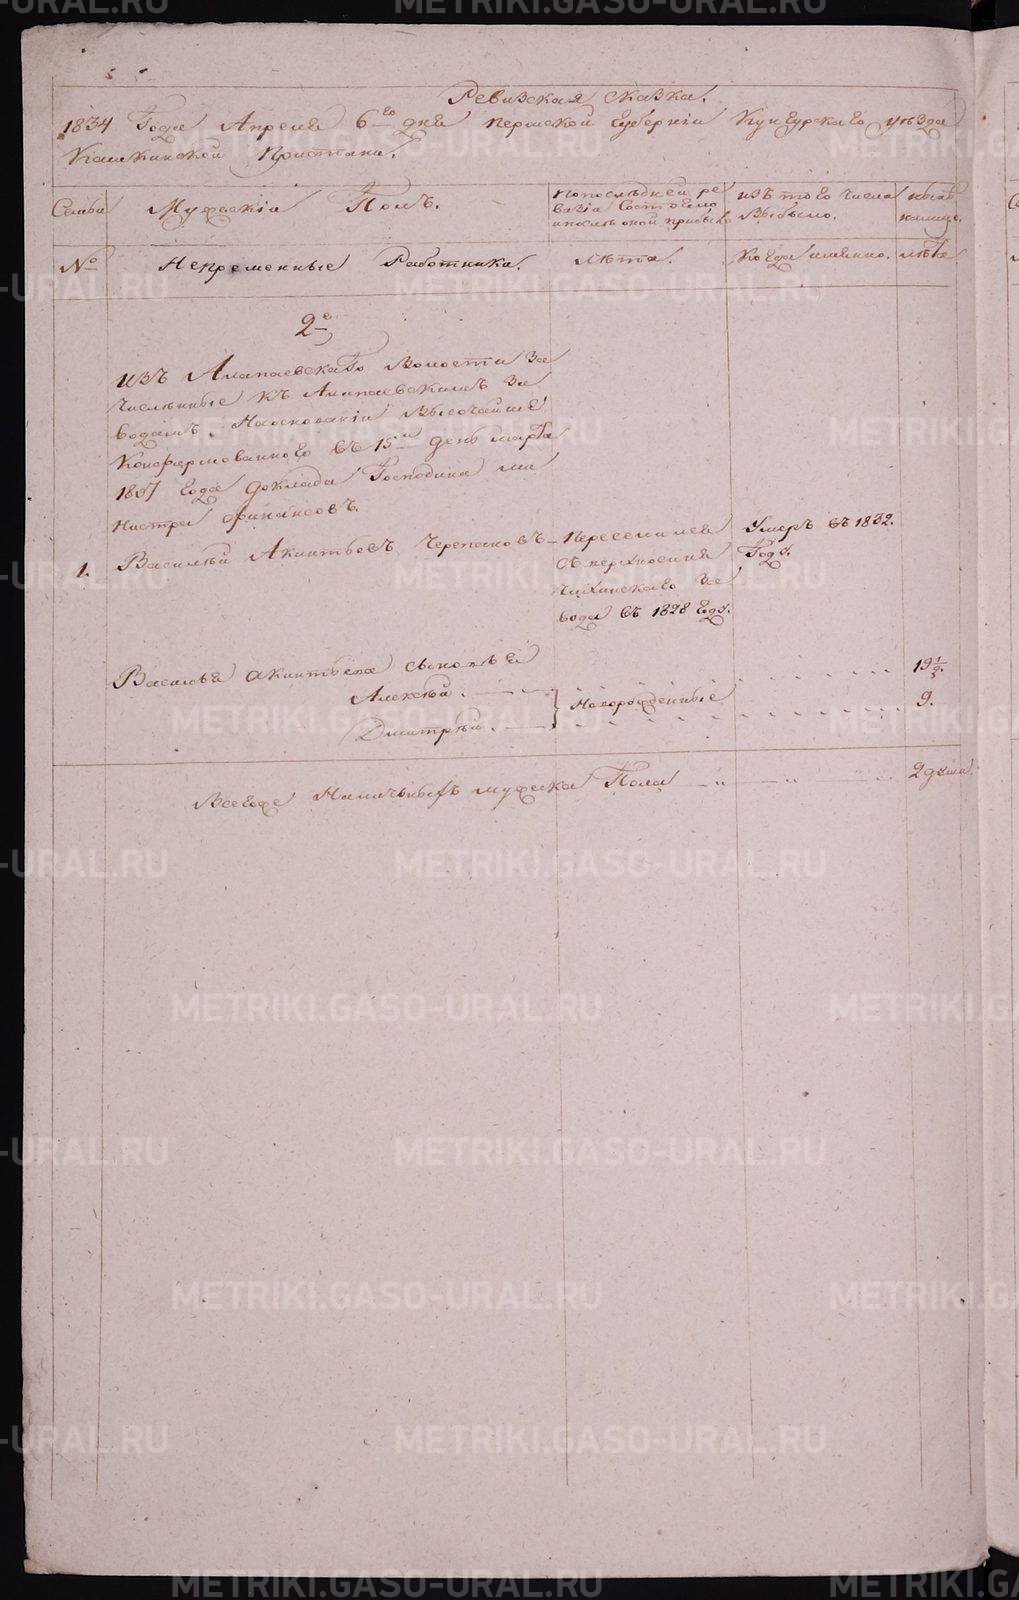 Ревизская сказка.
1834 Года Апреля 6го дня Пермской Губернiи Кунгурскаго уезда
Кашкинской Пристани.
Семьи
Мужескiй Полъ.
По последней ре
визiи состояло
и после оной прибыло
Изъ того числа
выбыло.
Ныне
на лице.
№
Непременные Работники.
Лета.
Когда имянно.
Лета
2е
изъ Алапаевскаго Волости За
численные къ Алапаевскимъ За
водамъ. На основанiи Высочайше
Конфермованного въ 15й день марта
1807 года Доклада Господина ми
нистра финансовъ.
1.
Василей Акинтьевъ Черепановъ
Переселился
съ верхносиня
чихинскаго За
вода въ 1828 году.
Умеръ въ 1832.
Году.
Василья Акинтьева сыновья
Алексей.
Дмитрей.
Новорожденные
19½.
9.
Всегоже Наличныхъ мужеска Пола
2 души.
METRIKI.GASO-URAL.RU